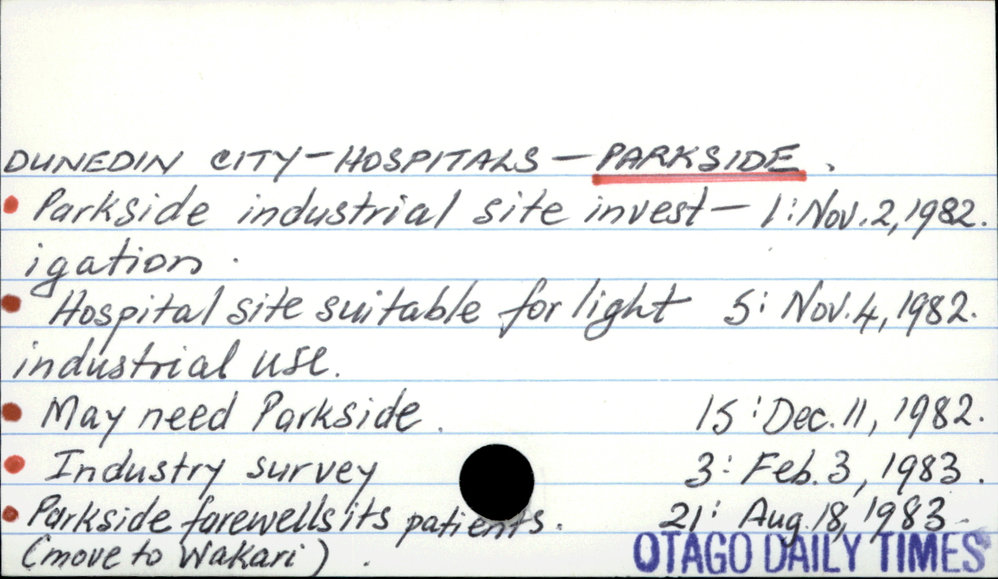 DUNEDIN CITY-HOSPITALS-PARKSIDE.
• Parkside industrial site invest- 1: Nov. 2, 1982.
igation.
• Hospital site suitable for light 5: Nov. 4, 1982.
industrial use.
• May need Parkside. 15: Dec. 11, 1982.
• Industry survey 3: Feb. 3, 1983.
• Parkside farewells its patients. 21: Aug. 18, 1983.
(move to Wakari).
OTAGO DAILY TIMES